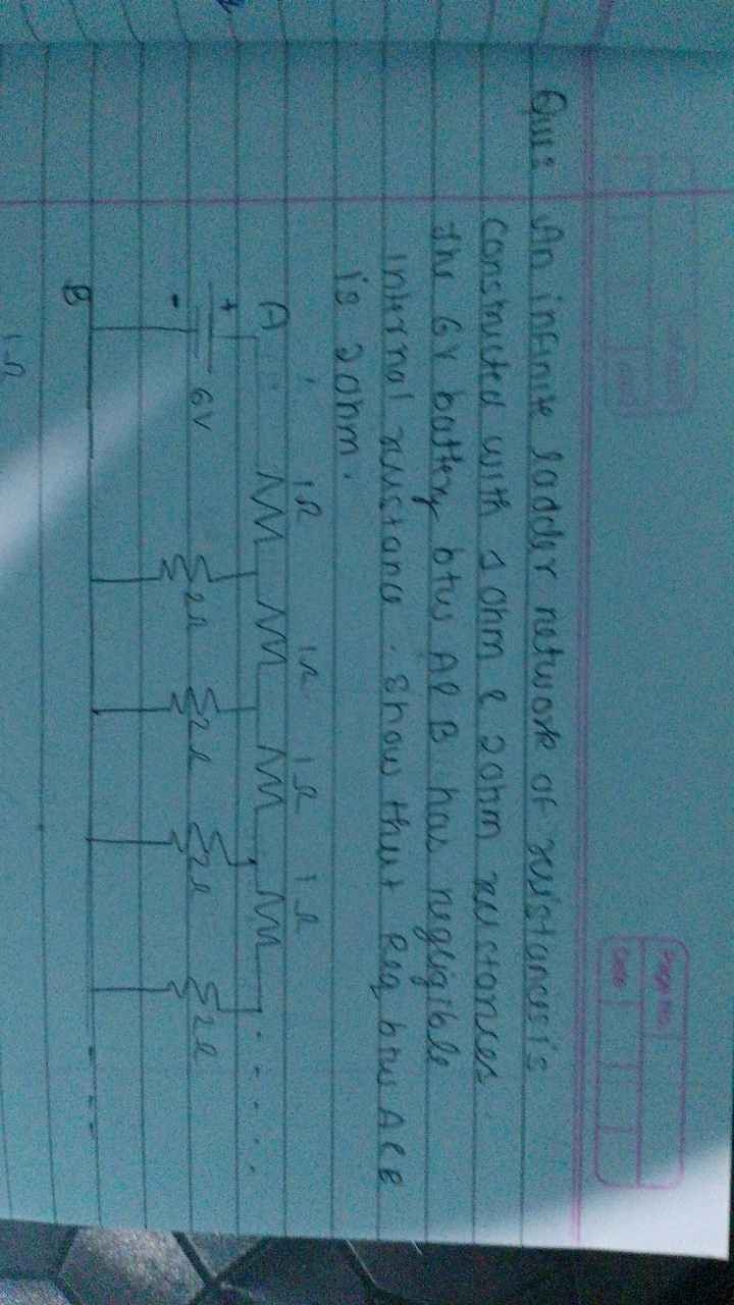 Ques An infinite ladder network of resistances is
constructed with 1 ohm & 2 ohm resistances.
The 6V battery btw A & B has negligible
internal resistance. Show that Req btw A & B
is 2 ohm.
1Ω 1Ω 1Ω 1Ω
A
+
6V 2Ω 2Ω 2Ω 2Ω
-
B
1Ω
Page No.
Date